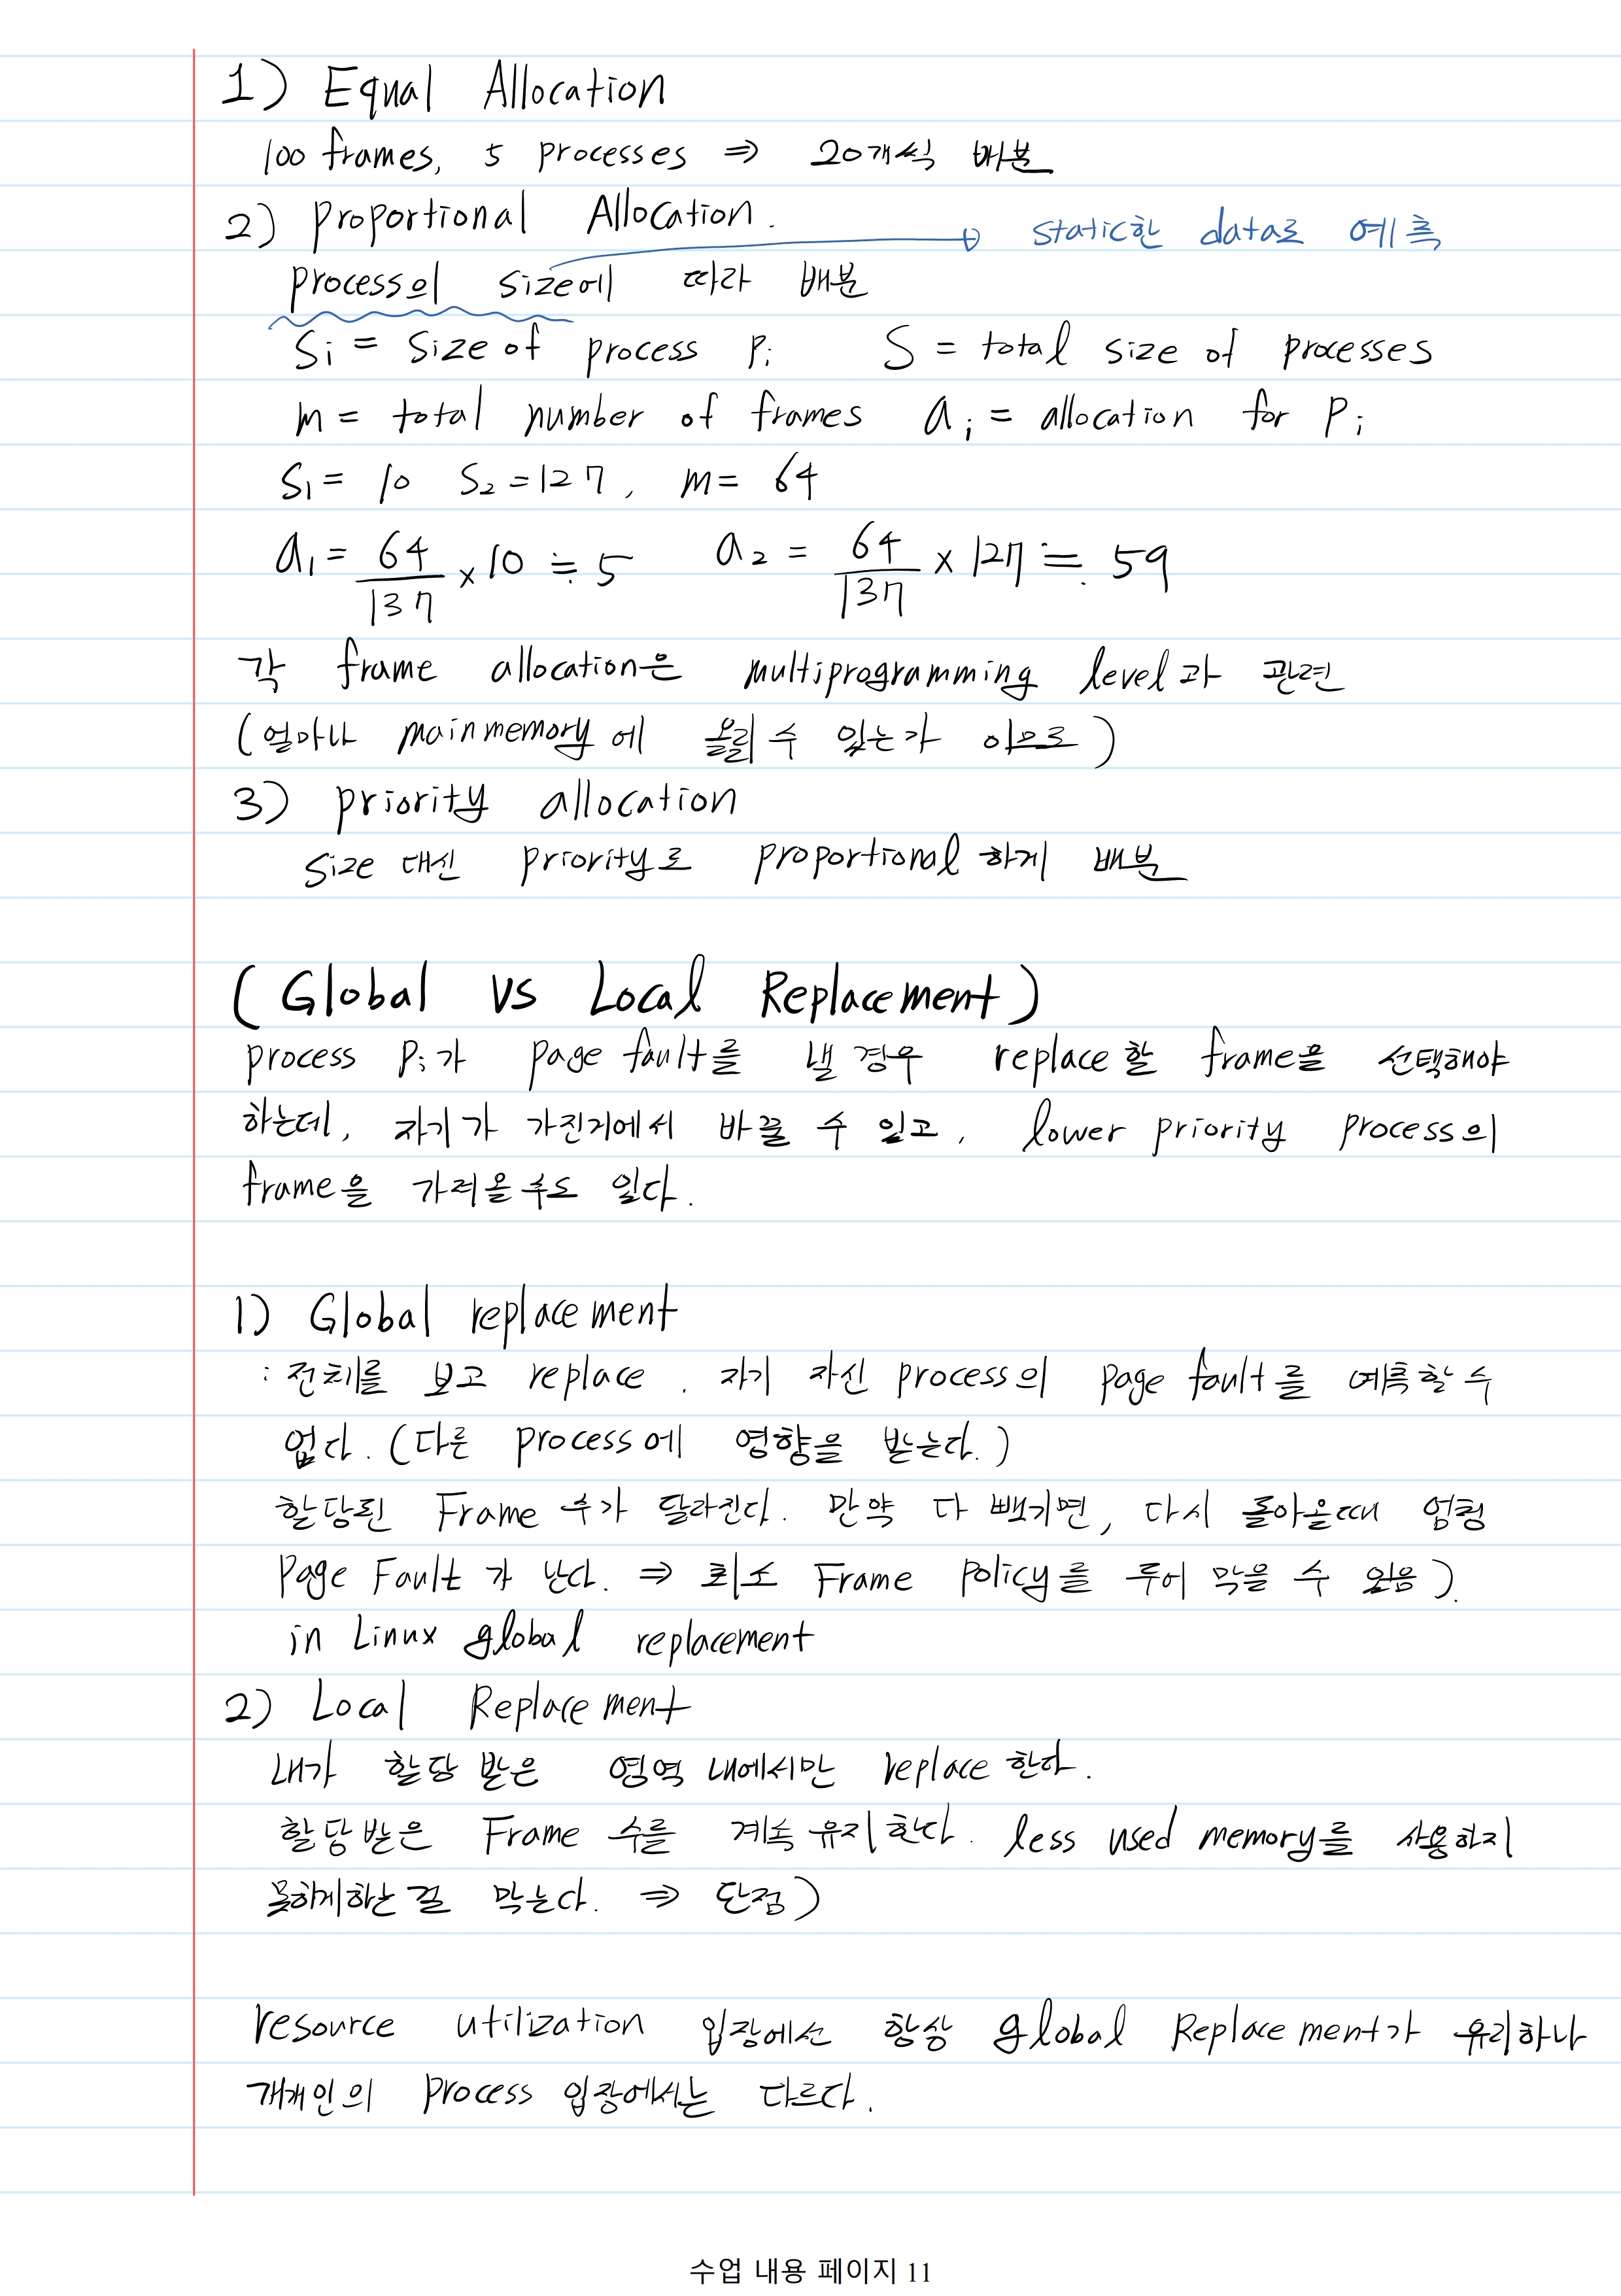 1) Equal Allocation
100 frames, 5 processes ⇒ 20개씩 배분
2) Proportional Allocation.
static한 data로 예측
process의 size에 따라 배분
Si = Size of process Pi S = total size of processes
m = total number of frames ai = allocation for Pi
S1 = 10 S2 = 127, m = 64
a1 = 64/137 × 10 ≒ 5 a2 = 64/137 × 127 ≒ 59
각 frame allocation은 multiprogramming level과 관련
(얼마나 main memory에 올릴 수 있는가 이므로)
3) priority allocation
size 대신 priority로 proportional하게 배분
(Global vs Local Replacement)
process Pi가 page fault를 낼 경우 replace할 frame을 선택해야
하는데, 자기가 가진거에서 바꿀 수 있고, lower priority process의
frame을 가져올수도 있다.
1) Global replacement
: 전체를 보고 replace. 자기 자신 process의 page fault를 예측할 수
없다. (다른 process에 영향을 받는다.)
할당된 Frame 수가 달라진다. 만약 다 뺏기면, 다시 돌아올때 엄청
Page Fault가 난다. ⇒ 최소 Frame Policy를 두어 막을 수 있음)
in Linux global replacement
2) Local Replacement
내가 할당 받은 영역 내에서만 replace 한다.
할당받은 Frame 수를 계속 유지한다. less used memory를 사용하지
못하게하는 걸 막는다. ⇒ 단점)
resource utilization 입장에선 항상 global Replacement가 유리하나
개개인의 process 입장에서는 다르다.
수업 내용 페이지 11